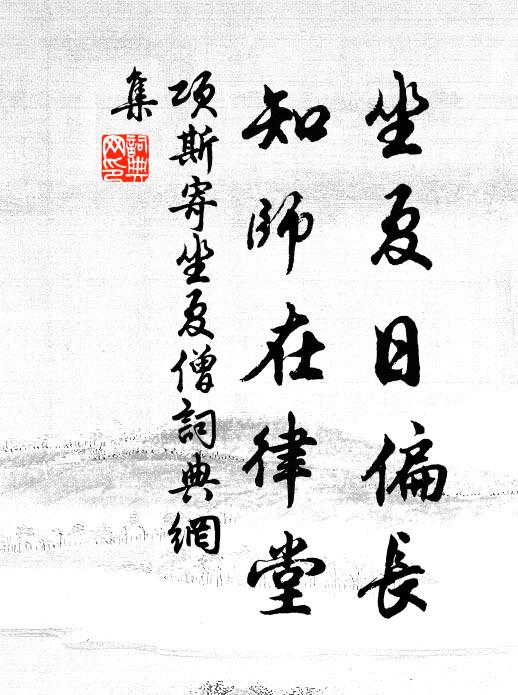 坐夏日偏長
知師在律堂
項斯寄坐夏僧詞典網
集
詞典
网印